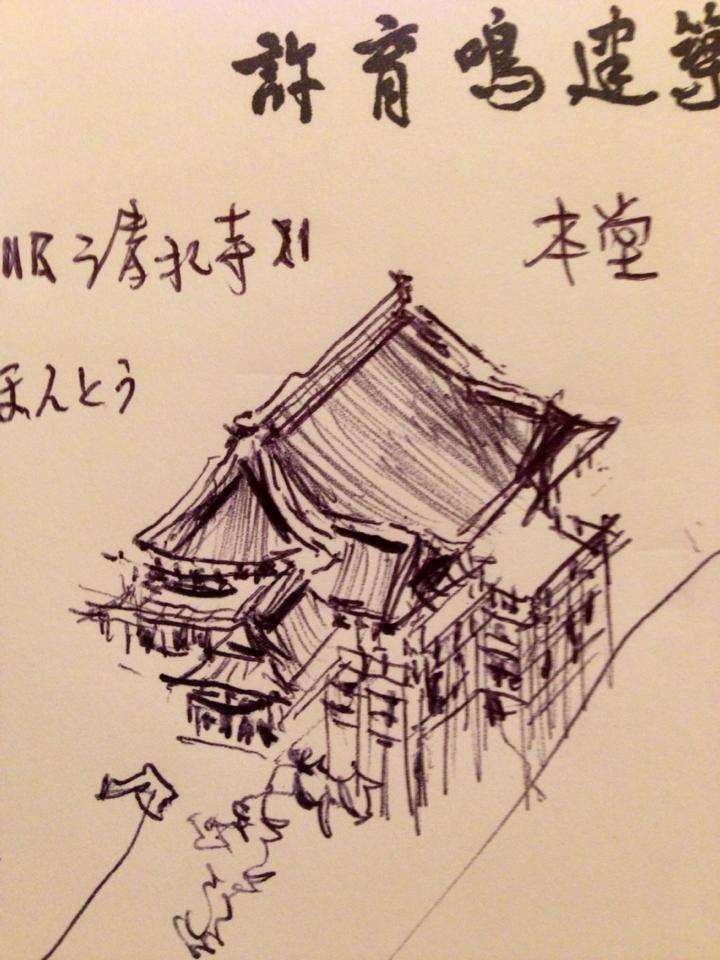 許育鳴建築
清水寺 本堂
ほんとう